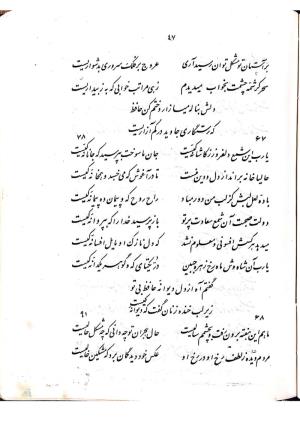 ۴۷
بر آستان تو مشکل توان رسید آری عروج بر فلک سروری بدشواریست
سحر کرشمه چشمت بخواب میدیدم زهی مراتب خوابی که به ز بیداریست
دلش بناله میازار و ختم کن حافظ
که رستگاری جاوید در کم آزاریست
۶۷ ۲۸
یا رب این شمع دلفروز ز کاشانه کیست جان ما سوخت بپرسید که جانانه کیست
حالیا خانه برانداز دل و دین منست تا در آغوش که میخسبد و همخانه کیست
باده لعل لبش کز لب من دور مباد راح روح که و پیمان ده پیمانه کیست
دولت صحبت آن شمع سعادت پرتو باز پرسید خدا را که بپروانه کیست
میدمد هر کسش افسونی و معلوم نشد که دل نازک او مایل افسانه کیست
یا رب آن شاه وش ماه رخ زهره جبین در یکتای که و گوهر یکدانه کیست
گفتم آه از دل دیوانه حافظ بی تو
زیر لب خنده زنان گفت که دیوانه کیست
۶۸ ۹۱
ماهم این هفته برون رفت و بچشمم سالیست حال هجران تو چه دانی که چه مشکل حالیست
مردم دیده ز لطف رخ او در رخ او عکس خود دید گمان برد که مشکین خالیست